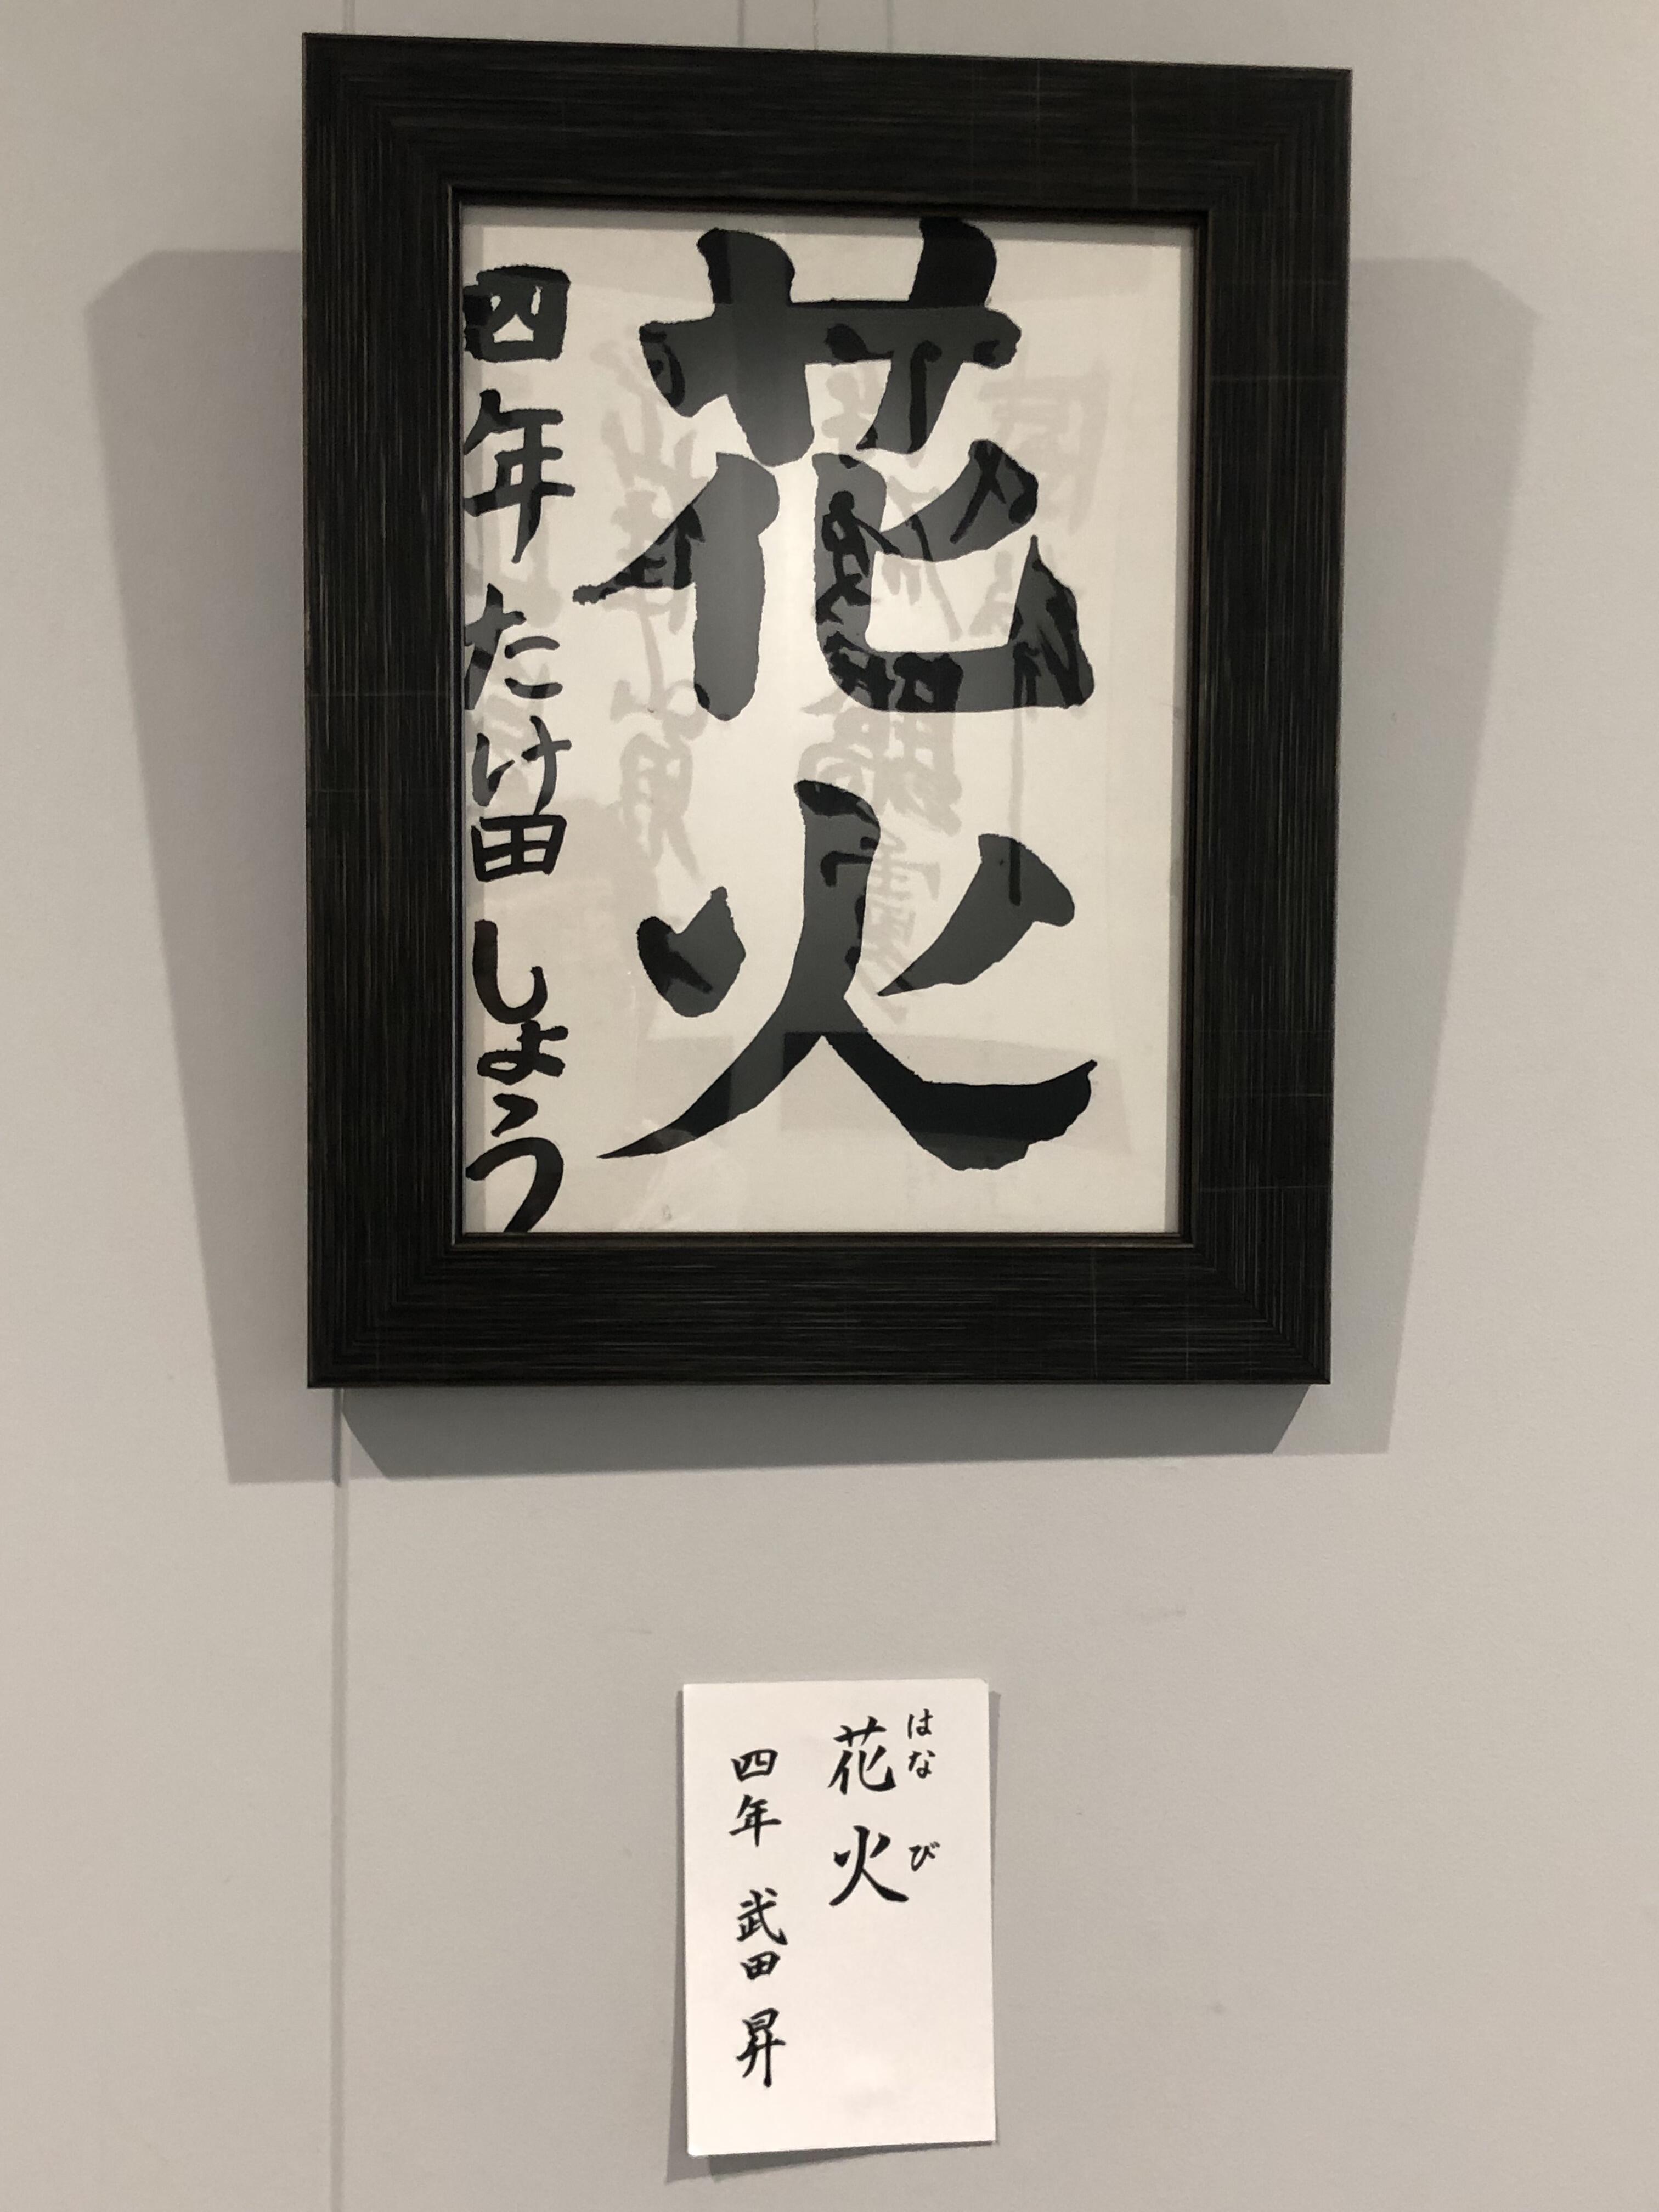 花火
四年 たけ田 しょう
はなび
花火
四年 武田 昇